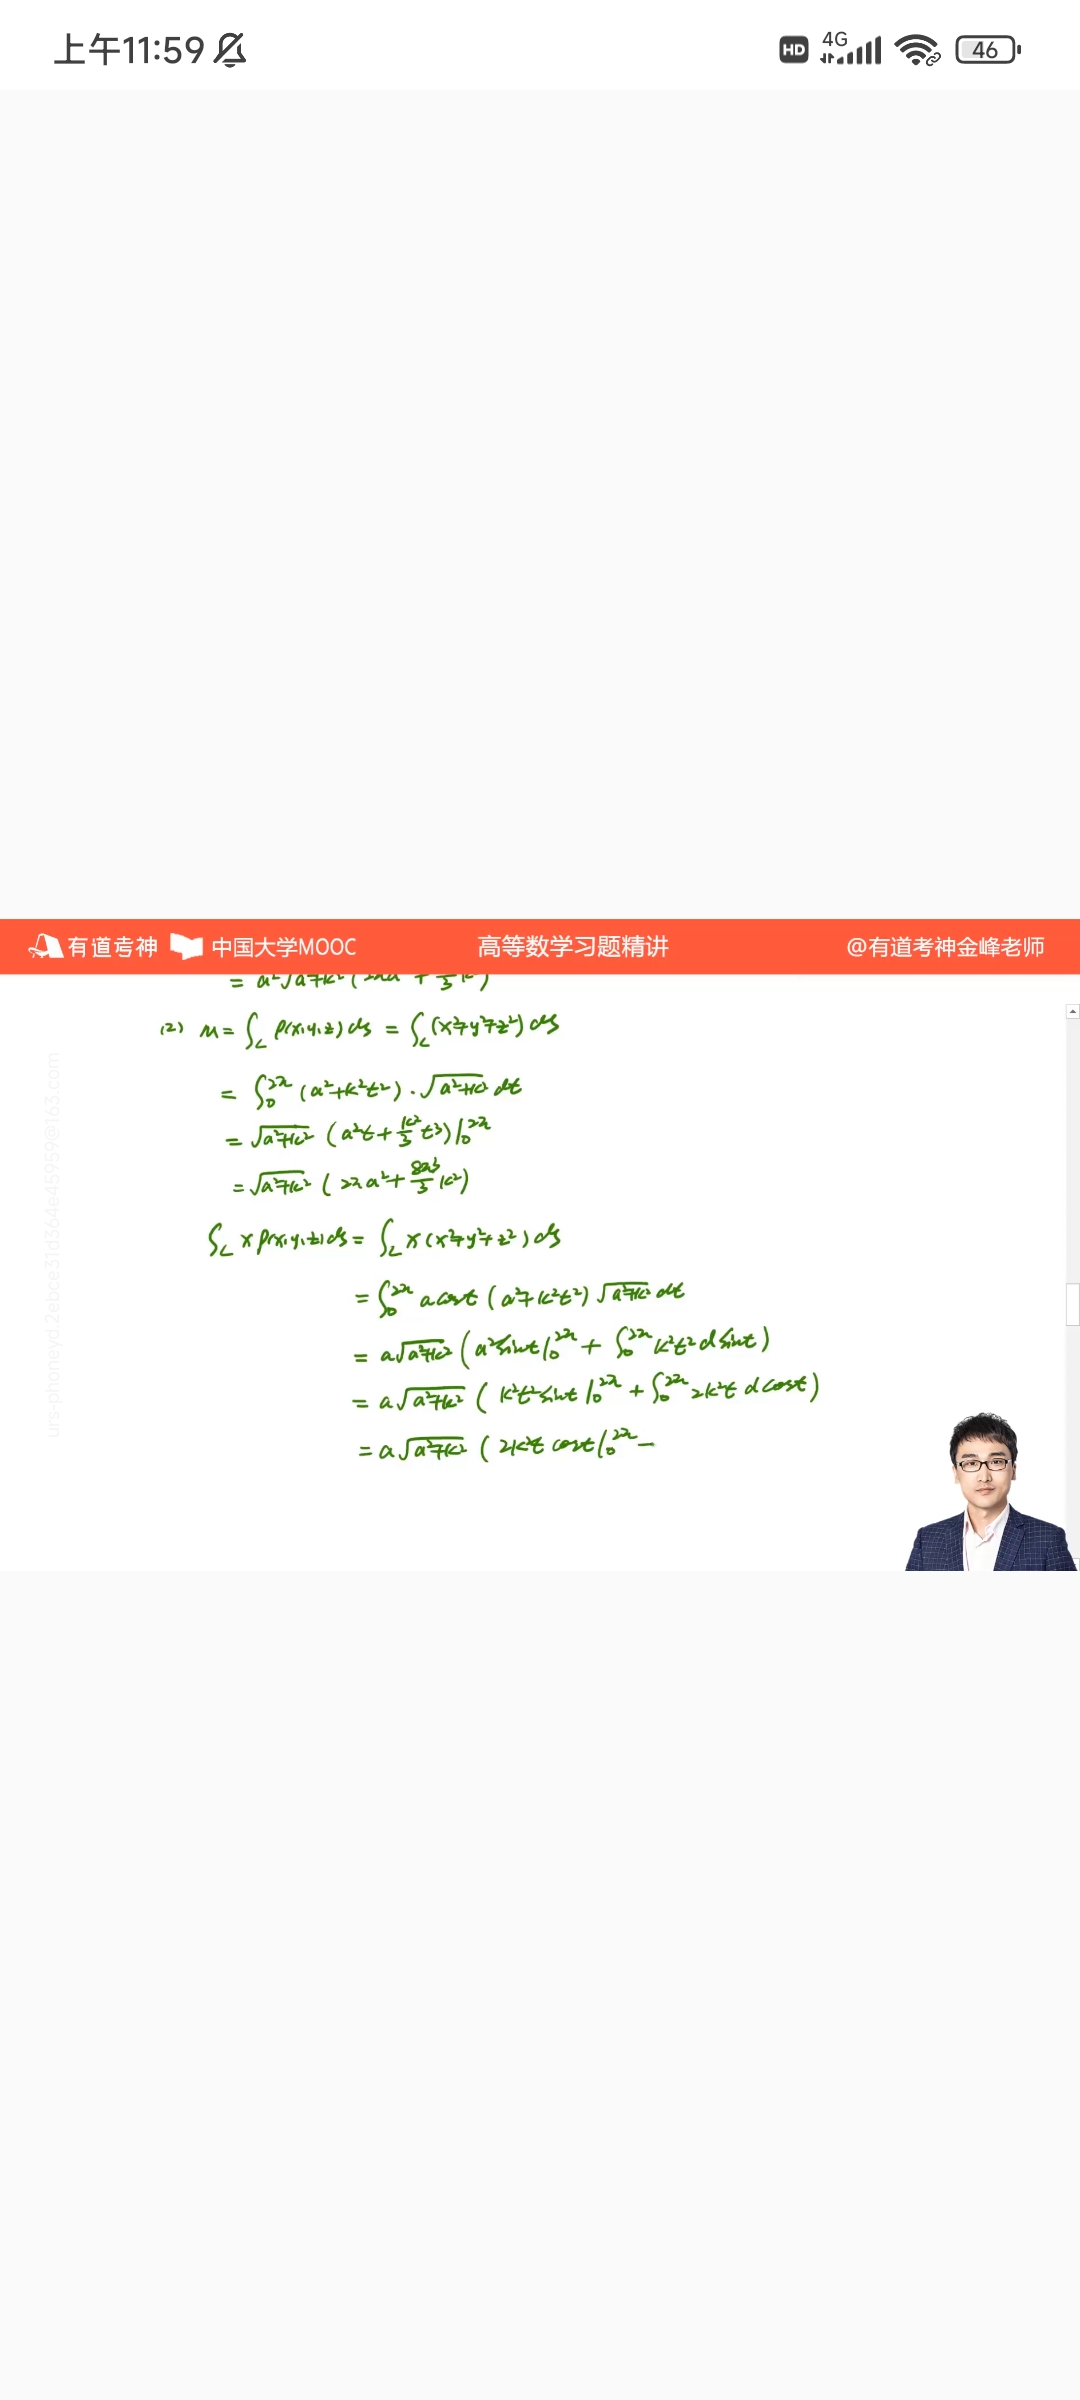 上午11:59 HD 4G 46
有道考神 中国大学MOOC 高等数学习题精讲 @有道考神金峰老师
= a²√a²+k² (2πa² + 8π³/3 k²)
(2) M = ∫_L ρ(x,y,z) ds = ∫_L (x²+y²+z²) ds
= ∫₀^2π (a²+k²t²)·√a²+k² dt
= √a²+k² (a²t + k²/3 t³)|₀^2π
= √a²+k² (2πa² + 8π³/3 k²)
∫_L xρ(x,y,z) ds = ∫_L x(x²+y²+z²) ds
= ∫₀^2π a cost (a²+k²t²) √a²+k² dt
= a√a²+k² (a² sint|₀^2π + ∫₀^2π k²t² d sint)
= a√a²+k² (k²t² sint|₀^2π + ∫₀^2π 2k²t d cost)
= a√a²+k² (2k²t cost|₀^2π −
urs-phoneyd.2ebce31d364e45959@163.com